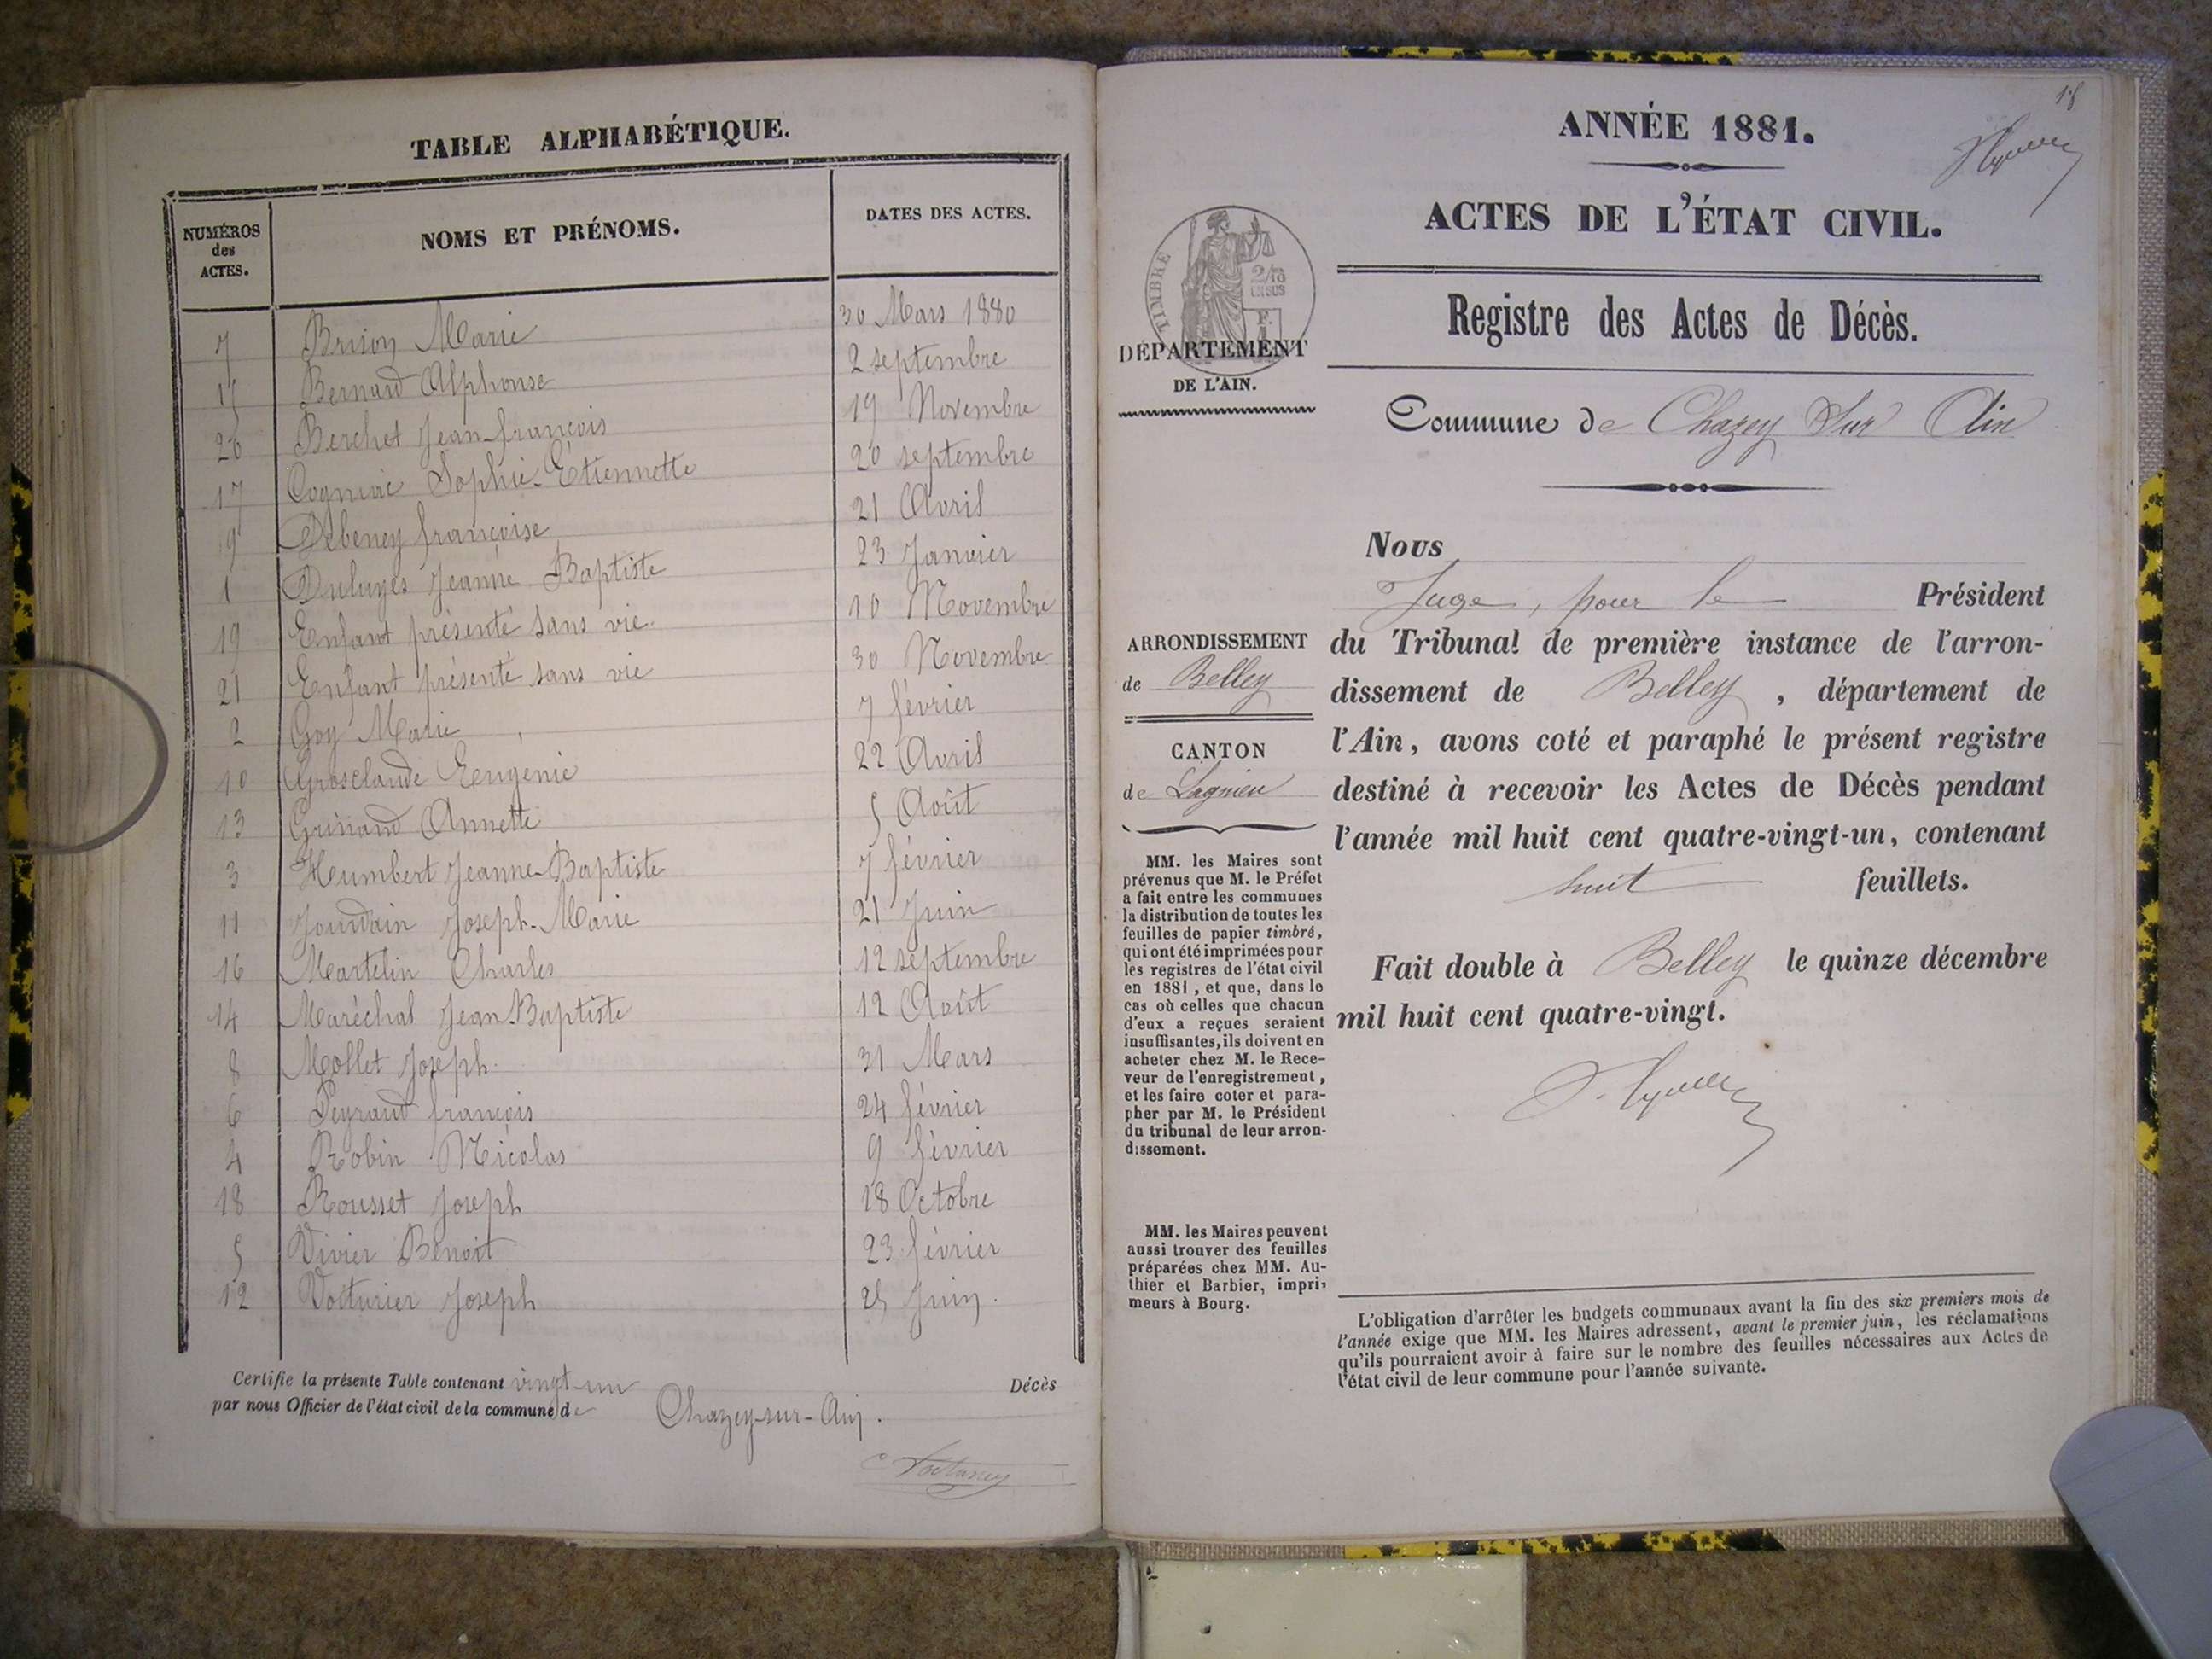 TABLE ALPHABÉTIQUE.
NUMÉROS des ACTES. NOMS ET PRÉNOMS. DATES DES ACTES.
7 Brison Marie 30 Mars 1880
15 Bernard Alphonse 2 septembre
20 Berchet Jean-françois 19 Novembre
17 Sophie-Étiennette 20 septembre
9 Debeney françoise 21 Avril
1 Jeanne Baptiste 23 Janvier
19 Enfant présenté sans vie. 10 Novembre
21 Enfant présenté sans vie 30 Novembre
2 Goy Marie 7 février
10 Grosclaude Eugénie 22 Avril
13 Grinand Annette 5 Août
3 Humbert Jeanne-Baptiste 7 février
11 Jourdain Joseph-Marie 21 Juin
16 Martelin Charles 12 septembre
14 Maréchal Jean-Baptiste 12 Août
8 Mollet Joseph. 31 Mars
6 Peyraud françois 24 février
4 Robin Nicolas 9 février
18 Rousset Joseph 18 Octobre
5 Vivier Benoit 23 février
12 Voiturier Joseph 25 Juin.
Certifie la présente Table contenant vingt-un Décès
par nous Officier de l'état civil de la commune de Chazey-sur-Ain.
18
ANNÉE 1881.
ACTES DE L'ÉTAT CIVIL.
TIMBRE
2/10
EN SUS
DÉPARTEMENT
DE L'AIN.
Registre des Actes de Décès.
Commune de Chazey sur Ain
Nous
Juge, pour le Président
du Tribunal de première instance de l'arron-
dissement de Belley, département de
l'Ain, avons coté et paraphé le présent registre
destiné à recevoir les Actes de Décès pendant
l'année mil huit cent quatre-vingt-un, contenant
huit feuillets.
Fait double à Belley le quinze décembre
mil huit cent quatre-vingt.
ARRONDISSEMENT
de Belley
CANTON
de Lagnieu
MM. les Maires sont
prévenus que M. le Préfet
a fait entre les communes
la distribution de toutes les
feuilles de papier timbré,
qui ont été imprimées pour
les registres de l'état civil
en 1881, et que, dans le
cas où celles que chacun
d'eux a reçues seraient
insuffisantes, ils doivent en
acheter chez M. le Rece-
veur de l'enregistrement,
et les faire coter et para-
pher par M. le Président
du tribunal de leur arron-
dissement.
MM. les Maires peuvent
aussi trouver des feuilles
préparées chez MM. Au-
thier et Barbier, impri-
meurs à Bourg.
L'obligation d'arrêter les budgets communaux avant la fin des six premiers mois de
l'année exige que MM. les Maires adressent, avant le premier juin, les réclamations
qu'ils pourraient avoir à faire sur le nombre des feuilles nécessaires aux Actes de
l'état civil de leur commune pour l'année suivante.